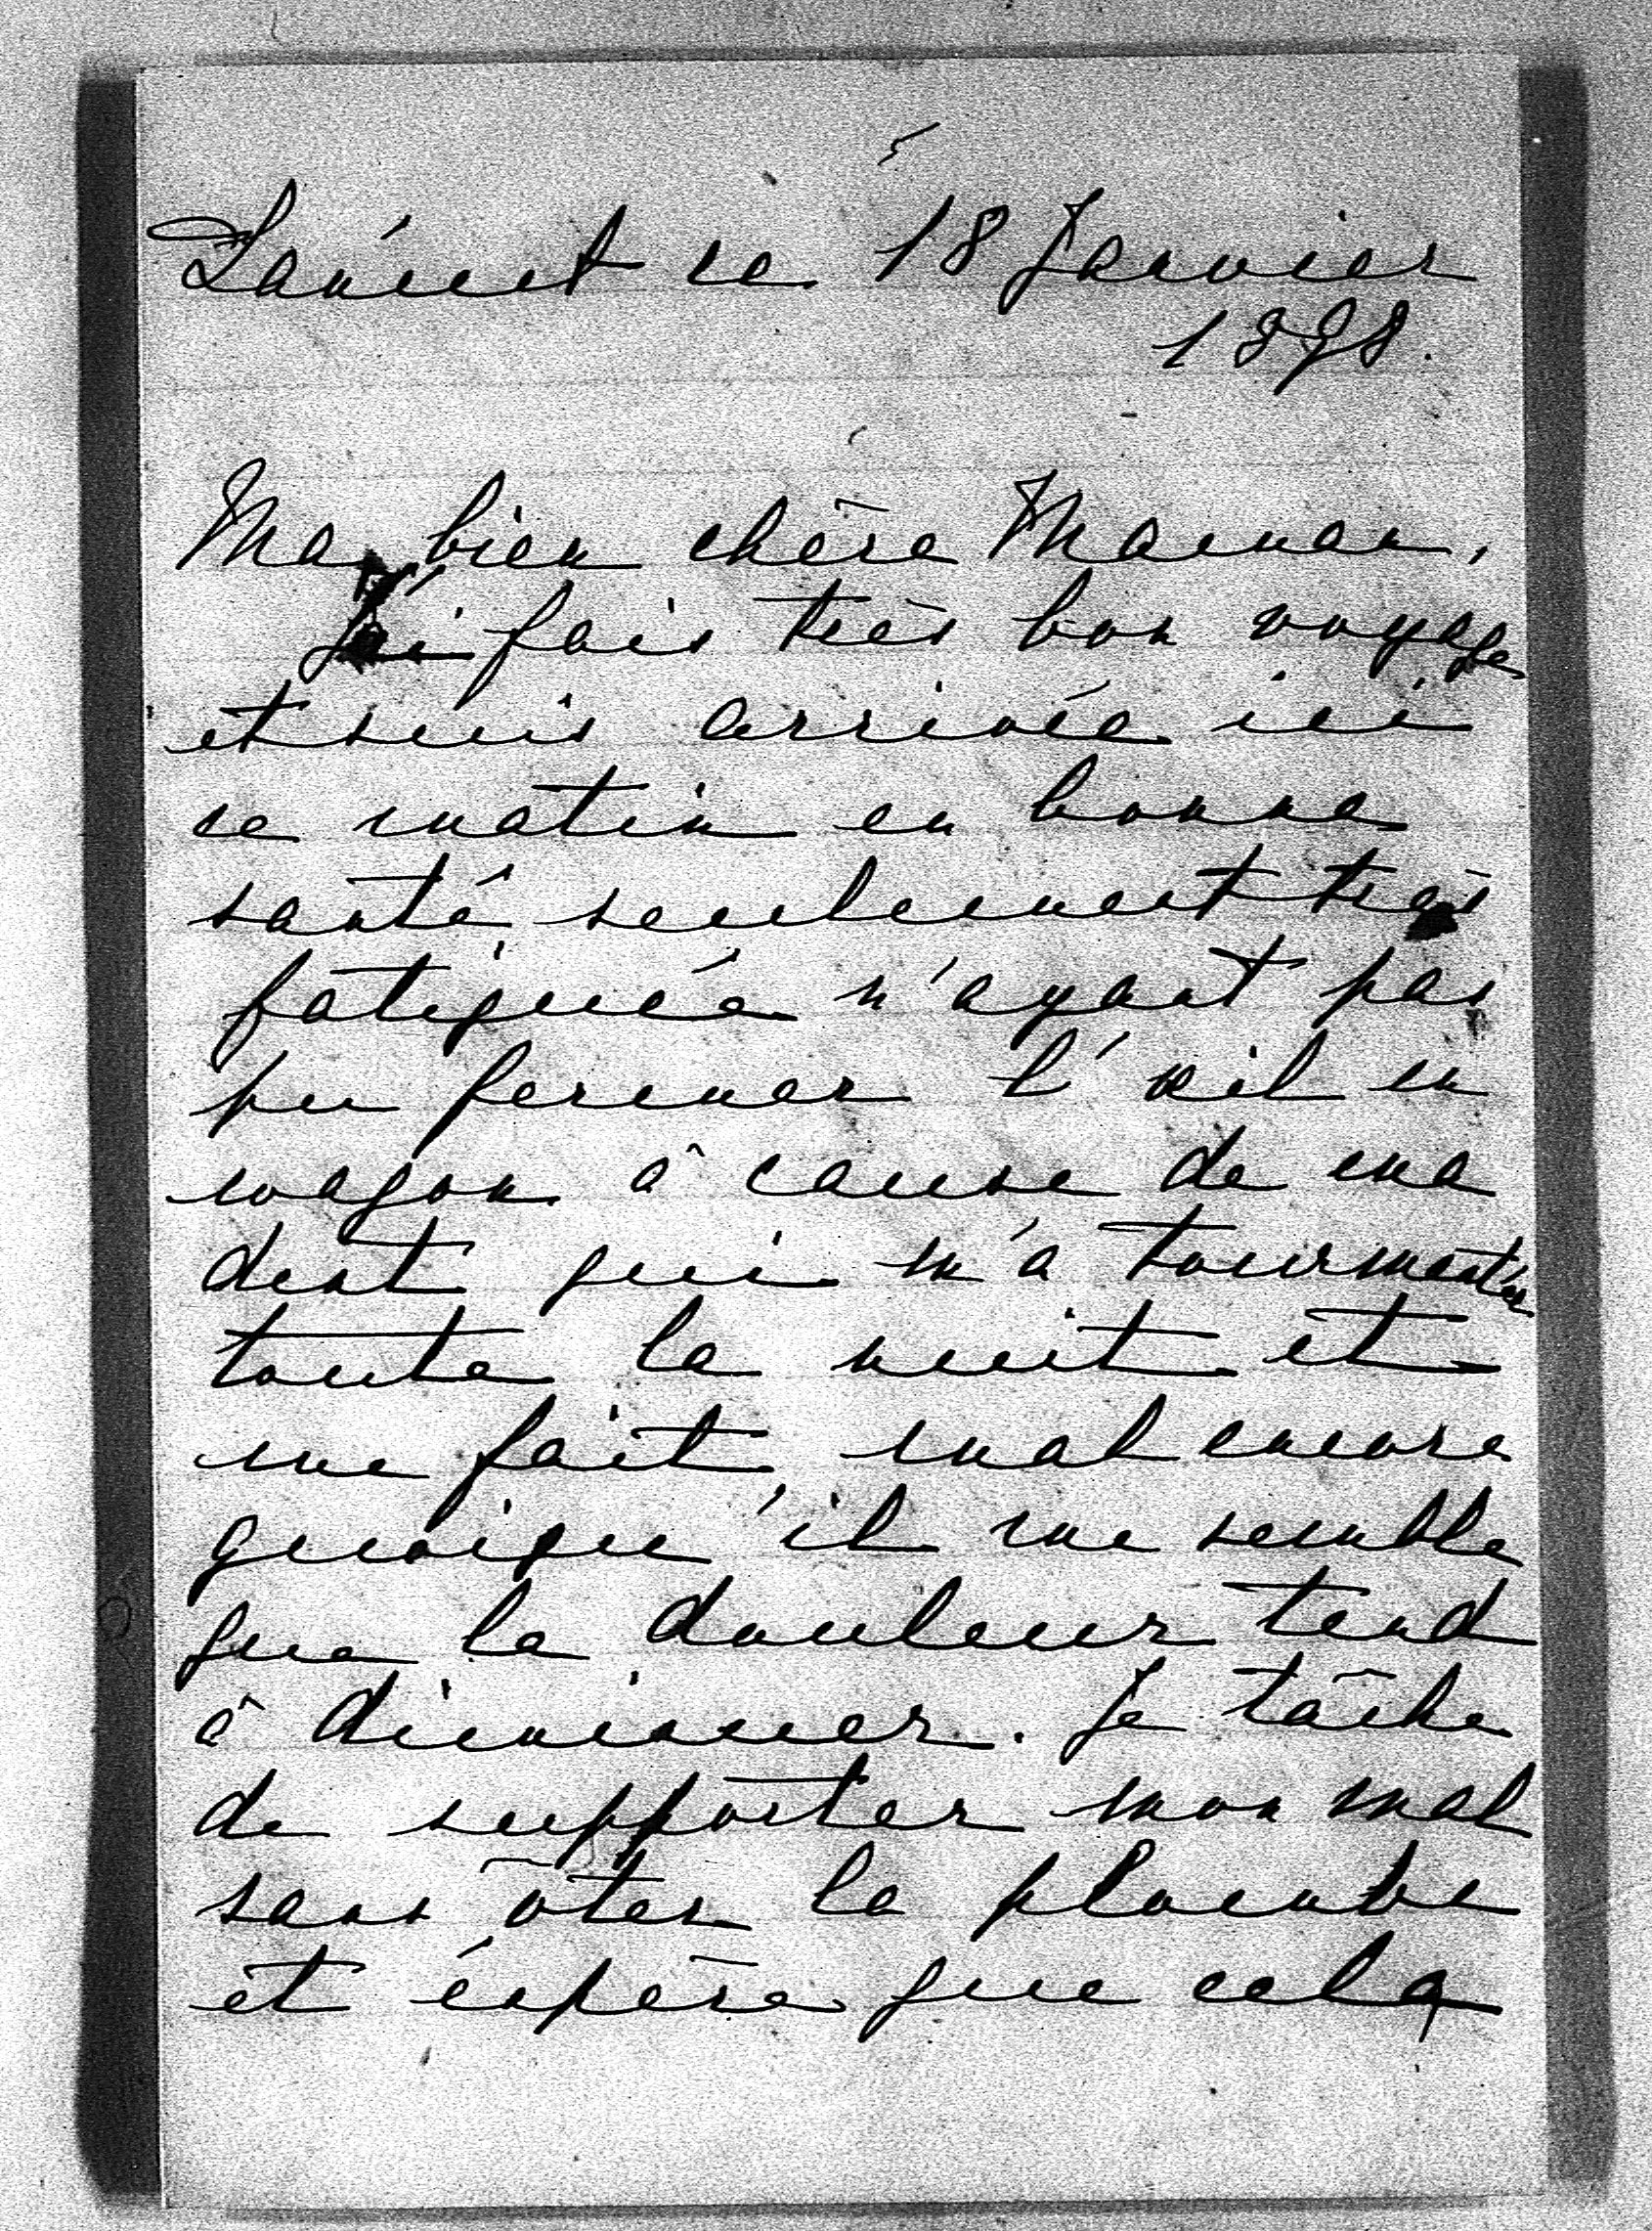 Łańcut ce 18 Janvier
1898.
Ma bien chère Maman,
J'ai fais très bon voyage
et suis arrivée ici
ce matin en bonne
santé seulement très
fatiguée n'ayant pas
pu fermer l'œil en
wagon à cause de ma
dent qui m'a tourmentée
toute la nuit et
me fait mal encore
quoiqu'il me semble
que la douleur tend
à diminuer. Je tâche
de supporter mon mal
sans ôter la plombe
et éspère que cela